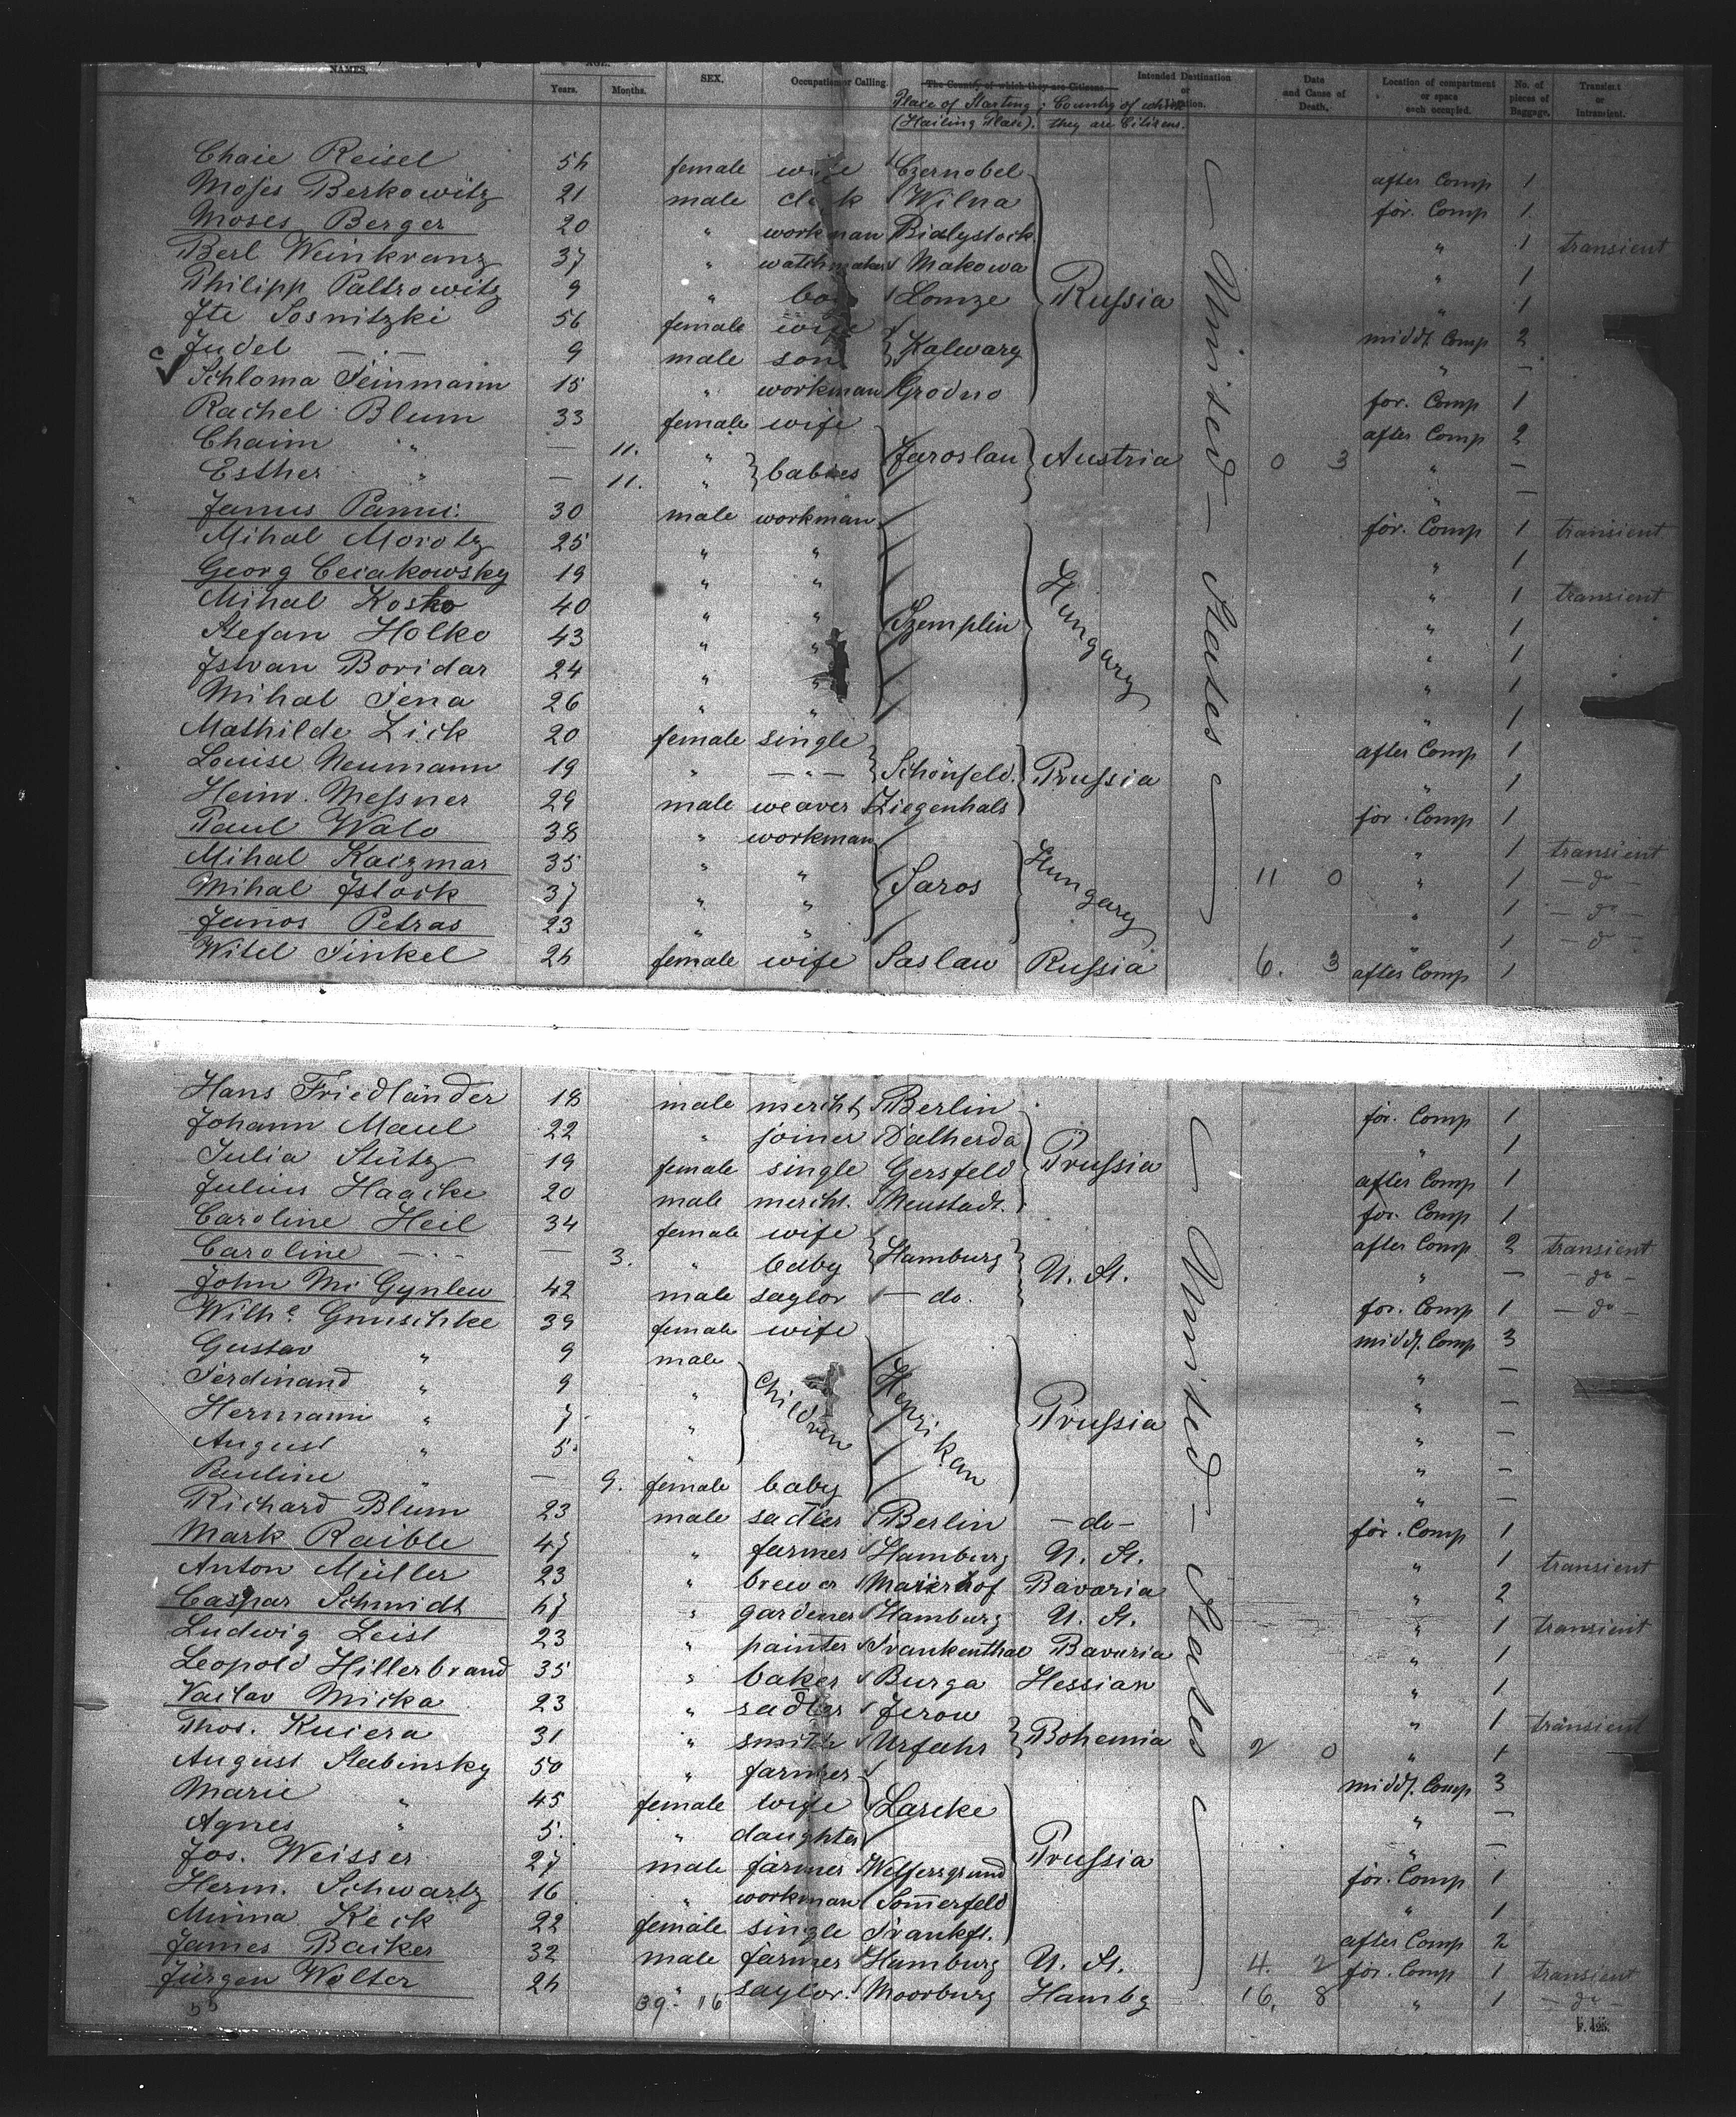 NAMES. AGE. Years. Months. SEX. Occupation or Calling. The Country of which they are Citizens. Intended Destination or Location. Date and Cause of Death. Location of compartment or space each occupied. No. of pieces of Baggage. Transient or Intransient.
Place of Starting; Country of which
(Hailing Place). they are Citizens.
Chaie Reisel 54 female wife Czernobel after Comp 1
Moses Berkowitz 21 male clerk Wilna for. Comp 1
Moses Berger 20 " workman Bialystock " 1 transient
Berl Weinkranz 37 " watchmaker Makowa " 1
Philipp Paltrowitz 9 " boy Lomze Russia " 1
Jte Sosnitzki 56 female wife middl. Comp 2
Judel —"— 9 male son Kalwary " —
Schloma Feinmann 15 " workman Grodno for. Comp 1
Rachel Blum 33 female wife after Comp 2
Chaim " — 11. " Jaroslau Austria 0 3 " —
Esther " — 11. " babies " —
Janus Panni 30 male workman for. Comp 1 transient
Mihal Morotz 25 " " " 1
Georg Ceiakowsky 19 " " " 1 transient
Mihal Kosko 40 " " Szemplin Hungary " 1
Stefan Holko 43 " " " 1
Istvan Boridar 24 " " " 1
Mihal Fena 26 " " " 1
Mathilde Zick 20 female single after Comp 1
Louise Neumann 19 " —"— Schönfeld. Prussia " 1
Heinr. Messner 29 male weaver Ziegenhals for. Comp 1
Paul Walo 38 " workman " 1 transient
Mihal Kaczmar 35 " " Saros Hungary 11 0 " 1 —do—
Mihal Istock 37 " " " 1 —do—
Janos Petras 23 " " " 1 —do—
Witel Finkel 24 female wife Saslaw Russia 6. 3 after Comp 1
Hans Friedländer 18 male mercht Berlin for. Comp 1
Johann Maul 22 " joiner Dalherda Prussia " 1
Julia Stütz 19 female single Gersfeld after Comp 1
Julius Haacke 20 male mercht. Neustadt. for. Comp 1
Caroline Heil 34 female wife after Comp 2 transient
Caroline —"— — 3. " baby Hamburg U. St. " — —do—
John Mc Gynlew 42 male saylor —do. for. Comp 1 —do—
Wilhe. Gnuschke 39 female wife middl. Comp 3
Gustav " 9 male " —
Ferdinand " 9 " children " —
Hermann " 7 " Prussia " —
August " 5. " " —
Pauline " — 9. female baby " —
Richard Blum 23 male sadler Berlin —do— for. Comp 1
Mark Raible 47 " farmer Hamburg U. St. " 1 transient
Anton Müller 23 " brewer Maierhof Bavaria " 2
Caspar Schmidt 47 " gardener Hamburg U. St. " 1 transient
Ludwig Leist 23 " painter Frankenthal Bavaria " 1
Leopold Hillerbrand 35 " baker Burga Hessian " 1
Vaclav Micka 23 " sadler Jerow " 1 transient
Thos. Kuiera 31 " smith Urfahr Bohemia 2 0 " 1
August Stabinsky 50 " farmer middl. Comp 3
Marie " 45 female wife Larcke " —
Agnes " 5. " daughter " —
Jos. Weisser 27 male farmer Prussia for. Comp 1
Herm. Schwartz 16 " workman Somerfeld " 1
Minna Keck 22 female single Frankft. after Comp 2
James Backer 32 male farmer Hamburg U. St. 4. 2 for. Comp 1 transient
Jürgen Wolter 24 " saylor. Moorburg Hambg 16. 8 " 1 —do—
— United — States —
— United — States —
55 39 - 16
F. 425.